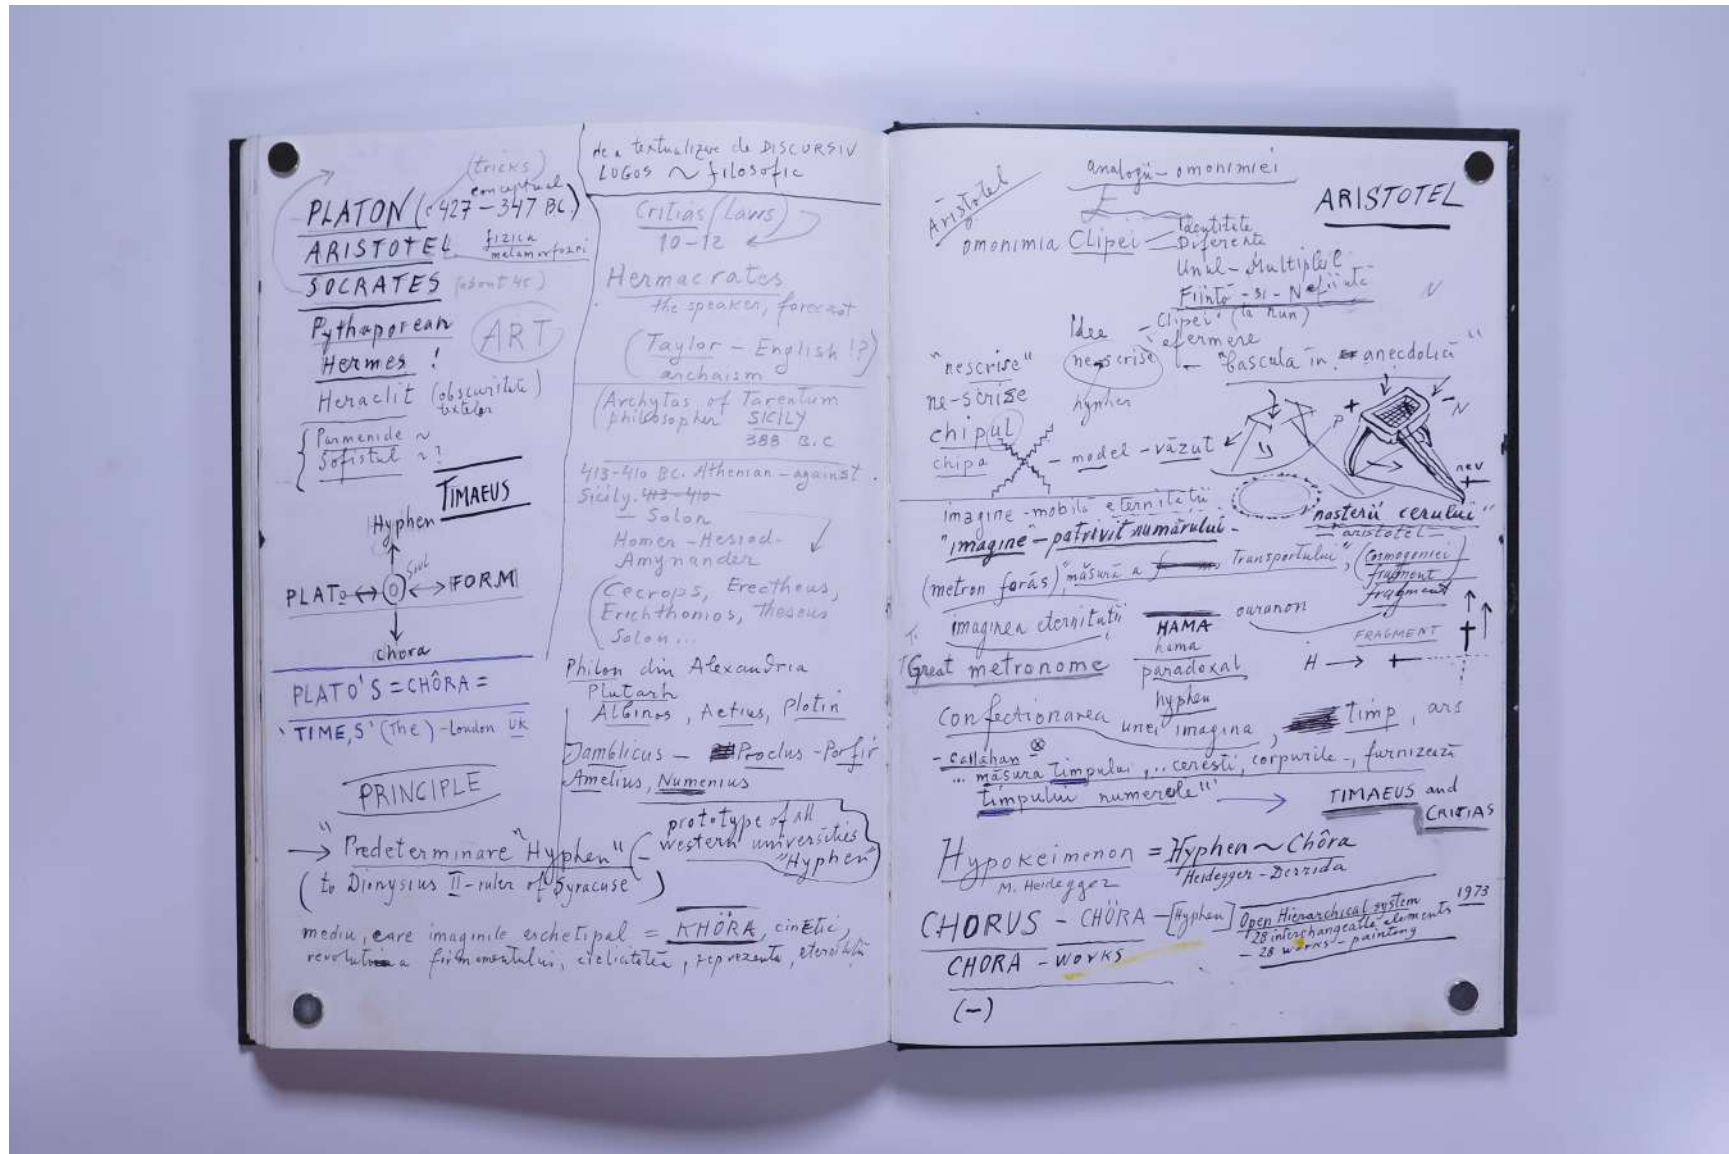 (tricks)
conceptual
PLATON (c 427 - 347 B.C.)
ARISTOTEL fizica
metamorfozei
SOCRATES (about 4c)
Pythaporean
ART
Hermes !
Heraclit (obscuritate
textelor
Parmenide ~
Sofistul ~ ?
TIMAEUS
Hyphen
PLATO ↔ ⊙ ↔ FORM
chora
PLATO'S = CHÔRA =
'TIME,S' (The) - London UK
PRINCIPLE
→ Predeterminare "Hyphen" (-
(to Dionysius II - ruler of Syracuse)
mediu, care imaginile archetipal = KHÖRA, cinetic,
revoluția firmamentului, ciclicitatea, reprezenta, eternitatea
de a textualizare de DISCURSIV
LOGOS ~ filosofic
Critias (Laws)
10-12
Hermacrates
the speaker, forecast
(Taylor - English !?)
archaism
(Archytas of Tarentum
philosopher SICILY
388 B.C
413-410 BC. Athenian - against
Sicily. 413-410
- Solon
Homer - Hesiod -
Amynander
(Cecrops, Erectheus,
Erichthonios, Theseus
Solon...
Philon din Alexandria
Plutarh
Albinos, Aetius, Plotin
Jamblicus - Proclus - Porfir
Amelius, Numenius
prototype of all
western universities
"Hyphen"
Aristotel
analogii - omonimiei
ARISTOTEL
omonimia Clipei Identitate
Diferenta
Unul - Multiplul
Ființă - și - Neființă
N
Idee - Clipei (ta nun)
efermere
"nescrise" nescrise - "bascula în anecdotică"
ne-scrise hyphen
chipul
chipa - model - văzut
P + - N
nev
imagine - mobilă eternitatii
"nasterii cerului"
- aristotel -
"imagine - potrivit numărului -
(metron forás) "măsură a Transportului", (Cosmogeniei)
fragment
fragment
imaginea eternitatii HAMA ouranon
hama
FRAGMENT
Great metronome paradoxal H → +
hyphen
Confectionarea unei imagina, timp, ars
- Callahan ⊗
... măsura timpului, .. ceresti, corpurile -, furnizează
timpului numerele" → TIMAEUS and
CRITIAS
Hypokeimenon = Hyphen ~ Chôra
M. Heidegger Heidegger - Derrida
CHORUS - CHÖRA - [Hyphen] Open Hierarchical system 1973
28 interchangeable elements
- 28 works - painting
CHORA - WORKS
(-)